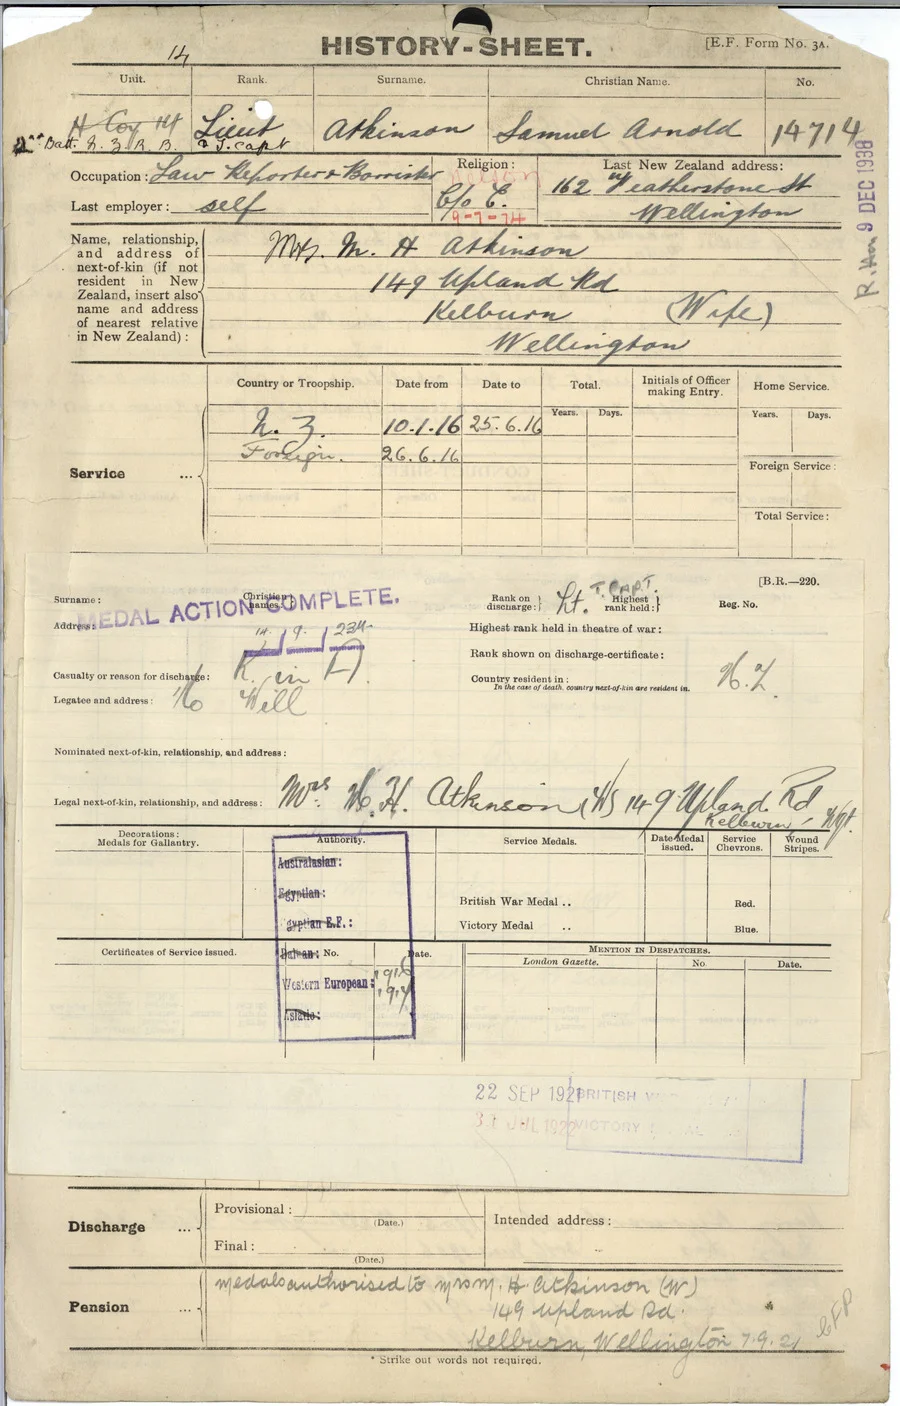 HISTORY-SHEET.
[E.F. Form No. 3A.
14
Unit. Rank. Surname. Christian Name. No.
H Coy 14
2nd Batt. N. Z. R. B.
Lieut
T. Capt
Atkinson
Samuel Arnold
14714
R. 9 DEC 1938
Occupation: Law Reporter & Barrister
Last employer: self
Religion:
C/o E.
9-7-74
Last New Zealand address:
162 Featherstone St
Wellington
Name, relationship,
and address of
next-of-kin (if not
resident in New
Zealand, insert also
name and address
of nearest relative
in New Zealand):
Mrs. M. H Atkinson
149 Upland Rd
Kelburn (Wife)
Wellington
Service ...
Country or Troopship. Date from Date to Total. Initials of Officer making Entry. Home Service.
Years. Days. Years. Days.
N. Z. 10.1.16 25.6.16
Foreign. 26.6.16
Foreign Service:
Total Service:
[B.R.—220.
Surname:
Christian names:
MEDAL ACTION COMPLETE.
Address:
Rank on discharge: Lt. T. CAPT.
Highest rank held:
Reg. No.
Highest rank held in theatre of war:
Rank shown on discharge-certificate:
Casualty or reason for discharge: K. in A.
Country resident in: N.Z.
In the case of death, country next-of-kin are resident in.
Legatee and address: No Will
Nominated next-of-kin, relationship, and address:
Legal next-of-kin, relationship, and address: Mrs. M. H. Atkinson (W) 149 Upland Rd
Kelburn, Wgt.
Decorations:
Medals for Gallantry.
Authority.
Service Medals.
Date Medal issued.
Service Chevrons.
Wound Stripes.
Australasian:
Egyptian:
Egyptian E.F.:
Balkan:
Western European: 1916
1917
Asiatic:
British War Medal ..
Victory Medal ..
Red.
Blue.
Certificates of Service issued. No. Date.
MENTION IN DESPATCHES.
London Gazette. No. Date.
22 SEP 1921
31 JUL 1922
BRITISH
VICTORY
Discharge ...
Provisional:
(Date.)
Final:
(Date.)
Intended address:
Pension ...
Medals authorised to Mrs M. H. Atkinson (W)
149 Upland Rd.
Kelburn, Wellington 7.9.21
* Strike out words not required.